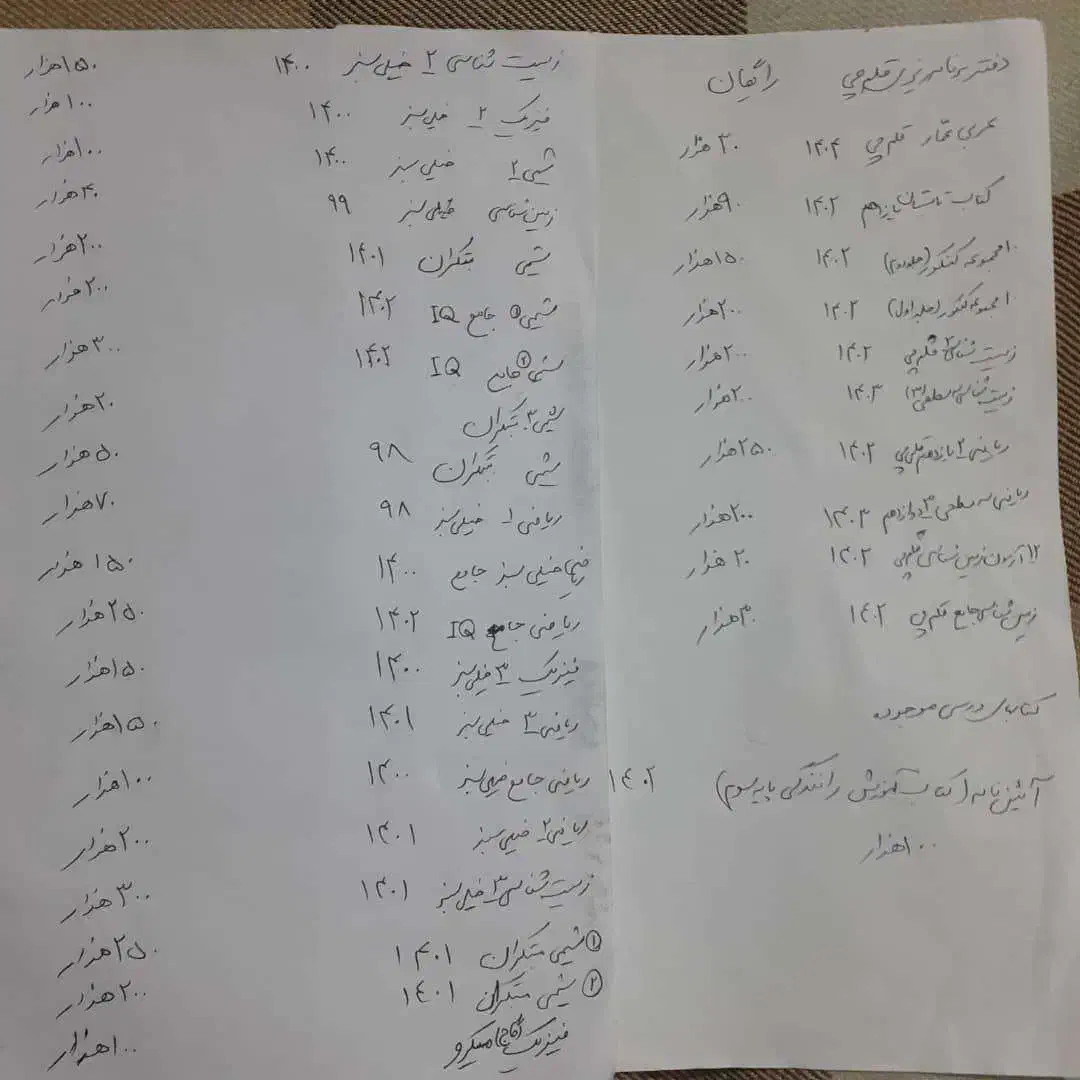 دفتر برنامه ریزی قلم چی رایگان
عربی عمار قلم چی ۱۴۰۴ ۳۰ هزار
کتاب تابستان یازدهم ۱۴۰۲ ۹۰ هزار
۱۰ مجموعه کنکور (جلد دوم) ۱۴۰۲ ۱۵۰ هزار
۱۰ مجموعه کنکور (جلد اول) ۱۴۰۲ ۲۰۰ هزار
زیست شناسی ۲ قلم چی ۱۴۰۲ ۲۰۰ هزار
زیست شناسی سه سطحی (۳) ۱۴۰۳ ۲۰۰ هزار
ریاضی ۲ یازدهم قلم چی ۱۴۰۲ ۲۵۰ هزار
ریاضی سه سطحی ۳ دوازدهم ۱۴۰۳ ۲۰۰ هزار
۱۲ آزمون زمین شناسی قلم چی ۱۴۰۲ ۲۰ هزار
زمین شناسی جامع قلم چی ۱۴۰۲ ۳۰ هزار
کتابهای درسی موجوده
آئین نامه (کتاب آموزش رانندگی پایه سوم) ۱۴۰۲
۱۰۰ هزار
زیست شناسی ۲ خیلی سبز ۱۴۰۰ ۱۵۰ هزار
فیزیک ۲ خیلی سبز ۱۴۰۰ ۱۰۰ هزار
شیمی ۲ خیلی سبز ۱۴۰۰ ۱۰۰ هزار
زمین شناسی خیلی سبز ۹۹ ۴۰ هزار
شیمی مبتکران ۱۴۰۱ ۲۰۰ هزار
شیمی ۱ جامع IQ ۱۴۰۲ ۲۰۰ هزار
شیمی ۲ جامع IQ ۱۴۰۲ ۳۰۰ هزار
شیمی ۳ مبتکران ۲۰ هزار
شیمی مبتکران ۹۸ ۵۰ هزار
ریاضی ۱ خیلی سبز ۹۸ ۷۰ هزار
خیلی سبز جامع ۱۴۰۰ ۱۵۰ هزار
ریاضی جامع IQ ۱۴۰۲ ۲۵۰ هزار
فیزیک ۳ خیلی سبز ۱۴۰۰ ۱۵۰ هزار
ریاضی ۳ خیلی سبز ۱۴۰۱ ۱۵۰ هزار
ریاضی جامع خیلی سبز ۱۴۰۰ ۱۰۰ هزار
ریاضی ۲ خیلی سبز ۱۴۰۱ ۲۰۰ هزار
زیست شناسی ۳ خیلی سبز ۱۴۰۱ ۳۰۰ هزار
۱ شیمی مبتکران ۱۴۰۱ ۲۵۰ هزار
۲ شیمی مبتکران ۱۴۰۱ ۲۰۰ هزار
فیزیک گاج میکرو ۱۰۰ هزار